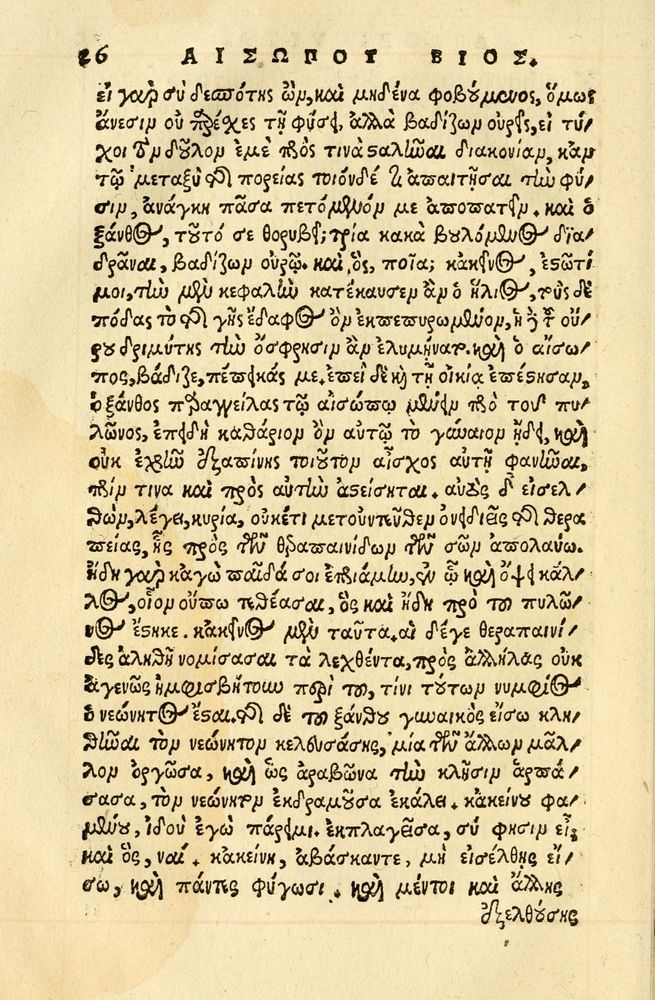 26 ΑΙΣΩΠΟΥ ΒΙΟΣ.
εἰ γὰρ σὺ δεσπότης ὢν, καὶ μηδένα φοβούμενος, ὅμως
ἄνεσιν οὐ παρέχεις τῇ φύσει, ἀλλὰ βαδίζων οὐρεῖς, εἰ τύ/
χοι τὸν δοῦλον ἐμὲ πρὸς τινὰ σταλῆναι διακονίαν, κἀν
τῷ μεταξὺ τῆς πορείας τοιόνδέ τι ἀπαιτῆσαι τὴν φύ/
σιν, ἀνάγκη πᾶσα πετόμενόν με ἀποπατεῖν. καὶ ὁ
ξάνθος, τοῦτό σε θορυβεῖ; τρία κακὰ βουλόμενος δια/
δρᾶναι, βαδίζων οὐρῶ. καὶ ὃς, ποῖα; κἀκεῖνος, ἑστῶτί
μοι, τὴν μὲν κεφαλὴν κατέκαυσεν ἂν ὁ ἥλιος, τοὺς δὲ
πόδας τὸ τῆς γῆς ἔδαφος ὂν ἐκπεπυρωμένον, ἡ δὲ τοῦ οὔ/
ρου δριμύτης τὴν ὄσφρησιν ἂν ἐλυμήνατο. καὶ ὁ αἴσω/
πος, βάδιζε, πέπεικάς με. ἐπεὶ δὲ καὶ τῇ οἰκίᾳ ἐπέστησαν,
ὁ ξάνθος παραγγείλας τῷ αἰσώπῳ μένειν πρὸ τοῦ πυ/
λῶνος, ἐπειδὴ καθάριον ὂν αὐτῷ τὸ γύναιον ᾔδει, καὶ
οὐκ ἐχρῆν ἐξαπίνης τοιοῦτον αἶσχος αὐτῇ φανῆναι,
πρίν τινα καὶ πρὸς αὐτὴν ἀστείσηται. αὐτὸς δ' εἰσελ/
θὼν, λέγει, κυρία, οὐκέτι μετουντεῦθεν ὀνειδιεῖς τῆς θερα
πείας, ἧς πρὸς τῶν θεραπαινίδων τῶν σῶν ἀπολαύω.
ἤδη γὰρ κἀγὼ παῖδά σοι ἐπριάμην, ἐν ᾧ καὶ ὄψει κάλ/
λος, οἷον οὔπω τεθέασαι, ὃς καὶ ἤδη πρὸ τοῦ πυλῶ/
νος ἕστηκε. κἀκεῖνος μὲν ταῦτα. αἱ δέ γε θεραπαινί/
δες ἀληθῆ νομίσασαι τὰ λεχθέντα, πρὸς ἀλλήλας οὐκ
ἀγενῶς ἠμφισβήτουν περὶ τοῦ, τίνι τούτων νυμφίος
ὁ νεώνητος ἔσται. τῆς δὲ τοῦ ξάνθου γυναικὸς εἴσω κλη/
θῆναι τὸν νεώνητον κελευσάσης, μία τῶν ἄλλων μᾶλ/
λον ὀργῶσα, καὶ ὡς ἀραβῶνα τὴν κλῆσιν ἁρπά/
σασα, τὸν νεώνητον ἐκδραμοῦσα ἐκάλει. κἀκείνου φα/
μένου, ἰδοὺ ἐγὼ πάρειμι. ἐκπλαγεῖσα, σύ φησιν εἶ;
καὶ ὃς, ναί. κἀκείνη, ἀβάσκαντε, μὴ εἰσέλθῃς εἴ/
σω, καὶ πάντες φύγωσι. καὶ μέντοι καὶ ἄλλης
ἐξελθούσης